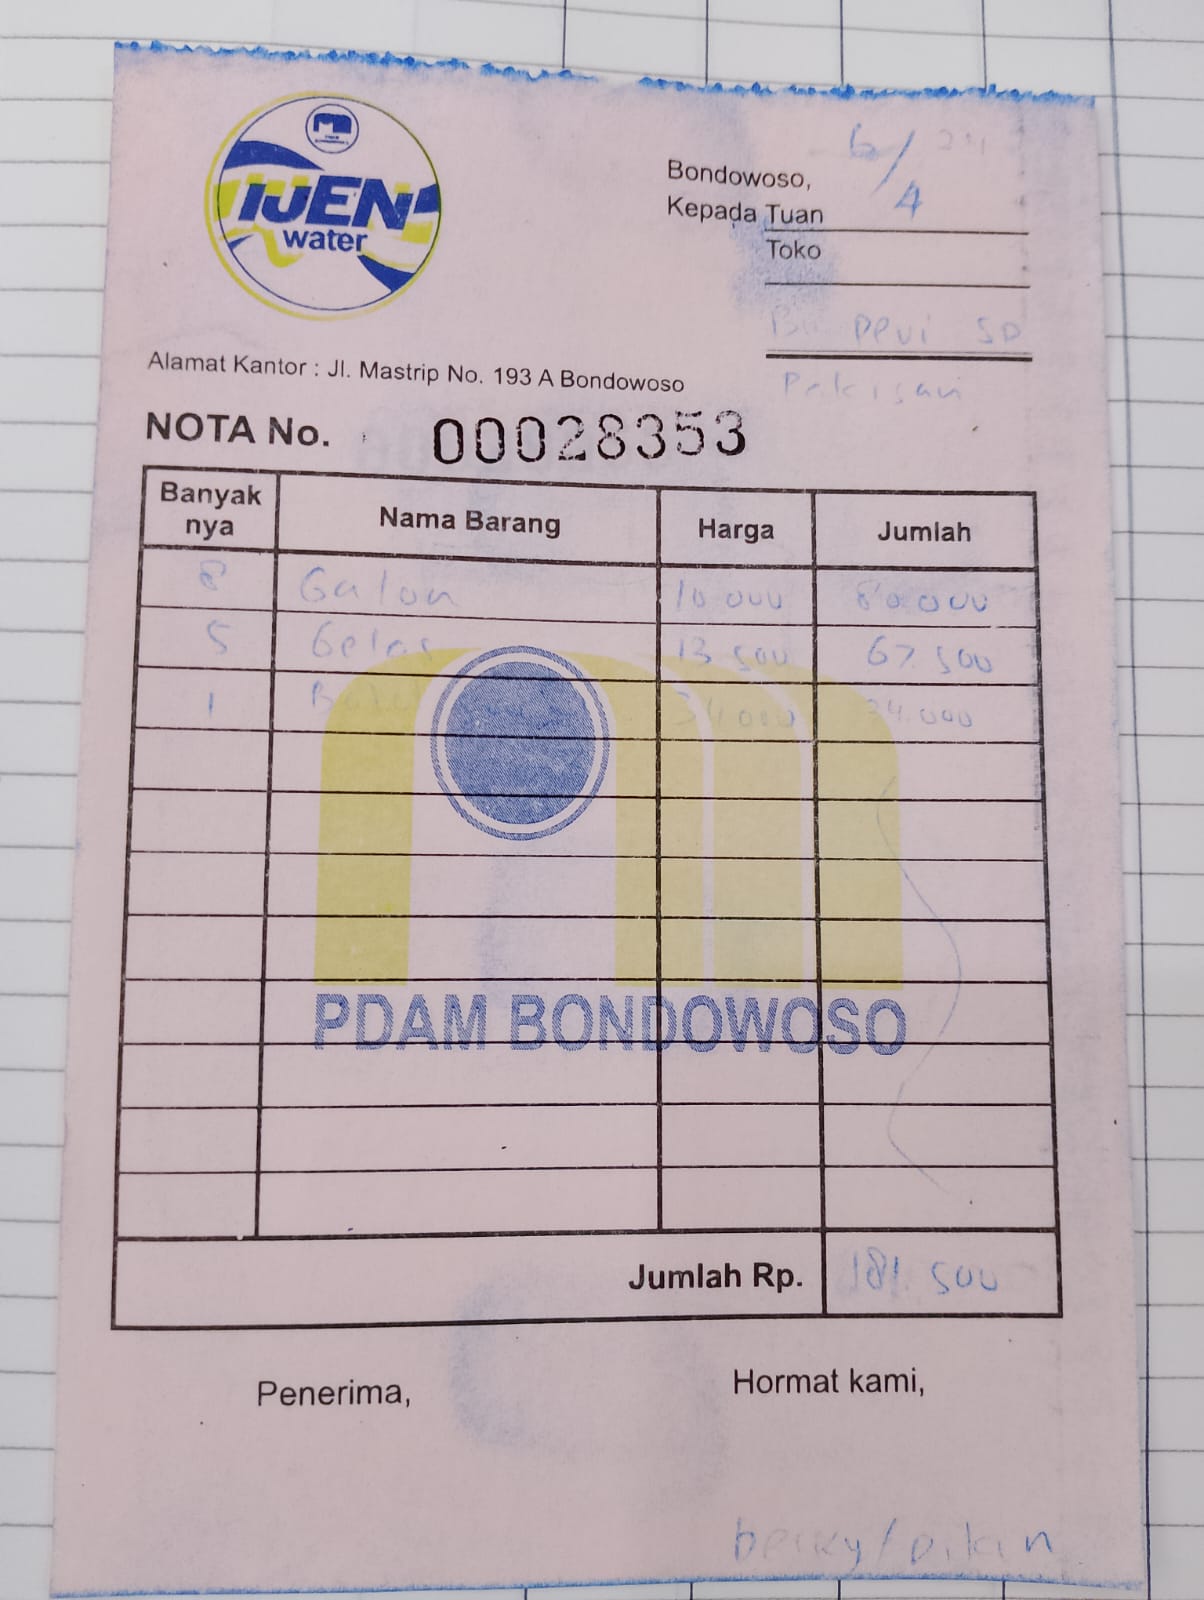 IJEN
water
Bondowoso, 6/4
Kepada Tuan
Toko
Bu Devi SD
Pekisan
Alamat Kantor : Jl. Mastrip No. 193 A Bondowoso
NOTA No. 00028353
Banyak nya Nama Barang Harga Jumlah
8 Galon 10 000 80.000
5 Gelas 13 500 67.500
1 34.000 34.000
PDAM BONDOWOSO
Jumlah Rp. 181.500
Penerima, Hormat kami,